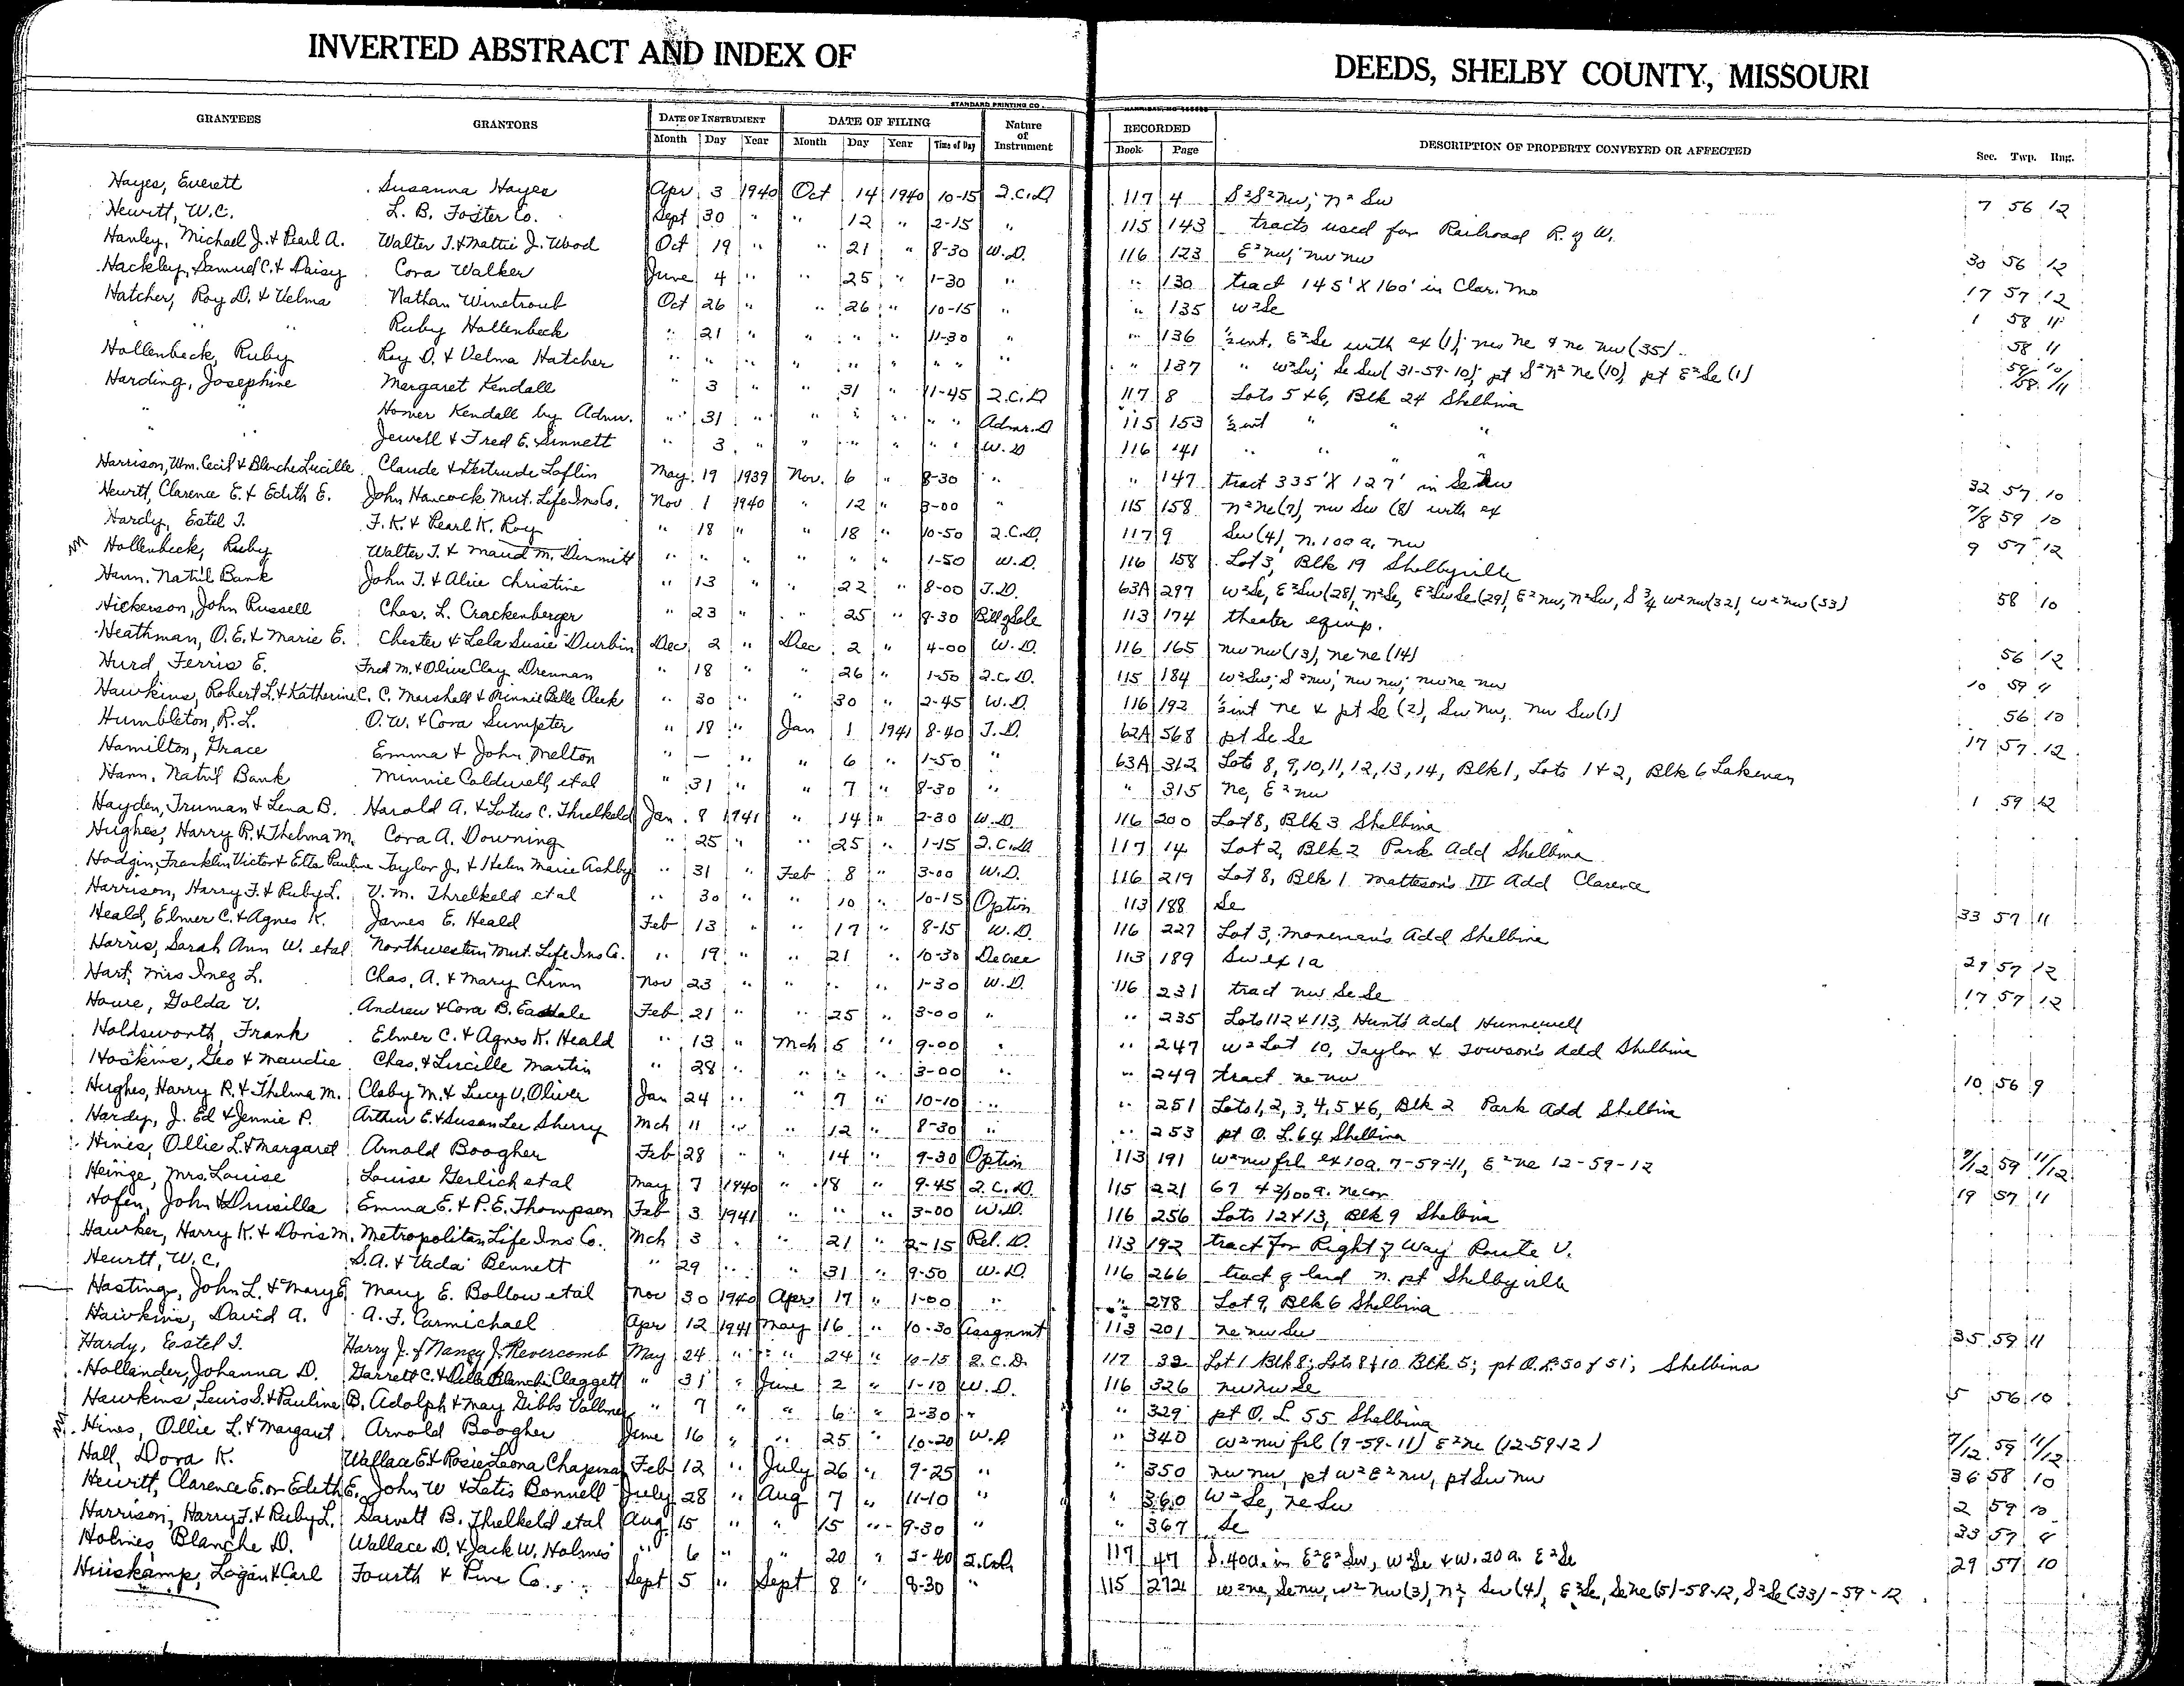 INVERTED ABSTRACT AND INDEX OF DEEDS, SHELBY COUNTY, MISSOURI
STANDARD PRINTING CO.
GRANTEES GRANTORS DATE OF INSTRUMENT DATE OF FILING Nature of Instrument RECORDED DESCRIPTION OF PROPERTY CONVEYED OR AFFECTED Sec. Twp. Rng.
Month Day Year Month Day Year Time of Day Book Page
Hayes, Everett Susanna Hayes Apr 3 1940 Oct 14 1940 10-15 Q.C.D 117 4 S²S²nw; n² Sw 7 56 12
Hewitt, W.C. L. B. Foster Co. Sept 30 " " 12 " 2-15 " 115 143 tracts used for Railroad R. of W.
Hanley, Michael J. & Pearl A. Walter T. & Mattie J. Wood Oct 19 " " 21 " 8-30 W.D. 116 123 E²nw; nw nw 30 56 12
Hackley, Samuel C. & Daisy Cora Walker June 4 " " 25 " 1-30 " " 130 tract 145' X 160' in Clar. Mo 17 57 12
Hatcher, Roy D. & Velma Nathan Winetroub Oct 26 " " 26 " 10-15 " " 135 w²Se 1 58 11
" " Ruby Hollenbeck " 21 " " " " 11-30 " 136 ½int. E²Se with ex (1); nw ne & ne nw (35) 58 11
Hollenbeck, Ruby Roy D. & Velma Hatcher " " " " " " " " " " 137 " w²Sw; Se Sw (31-59-10); pt S²n² ne (10), pt E²Se (1) 59/58 10/11
Harding, Josephine Margaret Kendall " 3 " " 31 " 11-45 Q.C.D 117 8 Lots 5 & 6, Blk 24 Shelbina
" " Homer Kendall by Admr. " 31 " " " " " " Admr. D 115 153 ½int " " "
Jewell & Fred E. Sinnett " 3 " " " " " " W.D 116 141 " " "
Harrison, Wm. Cecil & Blanche Lucille Claude & Gertrude Laflin May 19 1939 Nov. 6 " 8-30 " " 147 tract 335' X 127' in Se 32 57 10
Hewitt, Clarence E. & Edith E. John Hancock Mut. Life Ins Co. Nov 1 1940 " 12 " 3-00 " 115 158 n²ne (7), nw Sw (8) with ex 7/8 59 10
Hardy, Estel T. F. K. & Pearl K. Roy " 18 " " 18 " 10-50 Q.C.D. 117 9 Sw (4), n. 100 a. nw 9 57 12
Hollenbeck, Ruby Walter T. & Maud M. Dimmitt " " " " " " 1-50 W.D. 116 158 Lot 3, Blk 19 Shelbyville
Hann. Nat'l Bank John T. & Alice Christine " 13 " " 22 " 8-00 T.D. 63A 297 w²Se, E²Sw (28), n²Se, E²SwSe (29), E²nw, n²Sw, S ¾ w²nw (32), w²nw (33) 58 10
Hickerson, John Russell Chas. L. Crackenberger " 23 " " 25 " 9-30 Bill of Sale 113 174 theater equip.
Heathman, O. E. & Marie E. Chester & Lela Susie Durbin Dec 2 " Dec 2 " 4-00 W.D. 116 165 nw nw (13), ne ne (14) 56 12
Hurd, Ferris E. Fred M. & Olive Clay Drennan " 18 " " 26 " 1-50 Q.C.D. 115 184 w²Sw; S²nw; nw nw; nw ne nw 10 59 11
Hawkins, Robert L. & Katherine C. C. Marshall & Minnie Belle Cleek " 30 " " 30 " 2-45 W.D. 116 192 ½int ne & pt Se (2), Sw nw, nw Sw (1) 56 10
Humbleton, R. L. O. W. & Cora Sumpter " 18 " Jan 1 1941 8-40 T.D. 62A 568 pt Se Se 17 57 12
Hamilton, Grace Emma & John Melton " — " " 6 " 1-50 " 63A 312 Lots 8, 9, 10, 11, 12, 13, 14, Blk 1, Lots 1 & 2, Blk 6 Lakenan
Hann. Nat'l Bank Minnie Caldwell, etal " 31 " " 7 " 8-30 " " 315 ne, E²nw 1 59 12
Hayden, Truman & Lena B. Harold A. & Lotus C. Threlkeld Jan 8 1941 " 14 " 2-30 W.D. 116 200 Lot 8, Blk 3 Shelbina
Hughes, Harry R. & Thelma M. Cora A. Downing " 25 " " 25 " 1-15 Q.C.D 117 14 Lot 2, Blk 2 Park Add Shelbina
Hodgin, Franklin Victor & Etta Pauline Taylor J. & Helen Marie Ashby " 31 " Feb 8 " 3-00 W.D. 116 219 Lot 8, Blk 1 Matteson's III Add Clarence
Harrison, Harry F. & Ruby L. V. M. Threlkeld etal " 30 " " 10 " 10-15 Option 113 188 Se 33 57 11
Heald, Elmer C. & Agnes K. James E. Heald Feb 13 " " 17 " 8-15 W.D. 116 227 Lot 3, Moreman's Add Shelbina
Harris, Sarah Ann W. etal Northwestern Mut. Life Ins Co. " 19 " " 21 " 10-30 Decree 113 189 Sw ex 1 a 29 57 12
Hart, Mrs Inez L. Chas. A. & Mary Chinn Nov 23 " " " " 1-30 W.D. 116 231 tract nw Se Se 17 57 12
Howe, Golda V. Andrew & Cora B. Easdale Feb 21 " " 25 " 3-00 " " 235 Lots 112 & 113, Hunt's Add Hunnewell
Holdsworth, Frank Elmer C. & Agnes K. Heald " 13 " Mch 5 " 9-00 " " 247 w² Lot 10, Taylor & Towson's Add Shelbina
Hoskins, Geo & Maudie Chas. & Lucille Martin " 28 " " " " 3-00 " " 249 tract ne nw 10 56 9
Hughes, Harry R. & Thelma M. Claby M. & Lucy V. Oliver Jan 24 " " 7 " 10-10 " " 251 Lots 1, 2, 3, 4, 5 & 6, Blk 2 Park Add Shelbina
Hardy, J. Ed & Jennie P. Arthur E. & Susan Lee Sherry Mch 11 " " 12 " 8-30 " " 253 pt O. L. 64 Shelbina
Hines, Ollie L. & Margaret Arnold Boogher Feb 28 " " 14 " 9-30 Option 113 191 w²nw frl ex 10a. 7-59-11, E²ne 12-59-12 7/12 59 11/12
Heinze, Mrs. Louise Louise Gerlich etal May 7 1940 " 18 " 9-45 Q.C.D. 115 221 67 43/100 a. ne cor 19 57 11
Hofen, John & Drusilla Emma E. & P. E. Thompson Feb 3 1941 " " " 3-00 W.D. 116 256 Lots 12 & 13, Blk 9 Shelbina
Hawker, Harry K. & Doris M. Metropolitan Life Ins Co. Mch 3 " " 21 " 2-15 Rel. D. 113 192 tract for Right of Way Route V.
Hewitt, W. C. S. A. & Vada Bennett " 29 " " 31 " 9-50 W.D. 116 266 tract of land n. pt Shelbyville
Hastings, John L. & Mary E. Mary E. Bollow etal Nov 30 1940 Apr 17 " 1-00 " " 278 Lot 9, Blk 6 Shelbina
Hawkins, David A. A. F. Carmichael Apr 12 1941 May 16 " 10-30 Assgnmt 113 201 ne nw Sw 35 59 11
Hardy, Estel T. Harry J. & Nancy J. Revercomb May 24 " " 24 " 10-15 Q.C.D. 117 32 Lot 1 Blk 8; Lots 8 & 10 Blk 5; pt O.L. 50 & 51; Shelbina
Hollander, Johanna D. Garrett C. & Della Blanch Claggett " 31 " June 2 " 1-10 W.D. 116 326 nw nw Se 5 56 10
Hawkins, Lewis S. & Pauline B. Adolph & May Gibbs Vollmer " 7 " " 6 " 2-30 " " 329 pt O. L 55 Shelbina
Hines, Ollie L. & Margaret Arnold Boogher June 16 " " 25 " 10-20 W.D. " 340 w²nw frl (7-59-11) E²ne (12-59-12) 7/12 59 11/12
Hall, Dora K. Wallace E. & Rosie Leona Chapman Feb 12 " July 26 " 9-25 " " 350 nw nw, pt w²E²nw, pt Sw nw 36 58 10
Hewitt, Clarence E. or Edith E. John W & Letis Bonnell July 28 " Aug 7 " 11-10 " " 360 w²Se, ne Sw 2 59 10
Harrison, Harry F. & Ruby L. Garnett B. Threlkeld etal Aug. 15 " " 15 " 9-30 " " 367 Se 33 57 11
Holmes, Blanche D. Wallace D. & Jack W. Holmes " 6 " " 20 " 2-40 Q.C.D. 117 47 S. 40a. in E²E²Sw, w²Se & W. 20 a. E²Se 29 57 10
Logan & Carl Fourth & Pine Co. Sept 5 " Sept 8 " 8-30 " 115 272 w²ne, Se nw, w² nw (3), n², Sw (4), E²Se, Se ne (5)-58-12, S²Se (33)-59-12